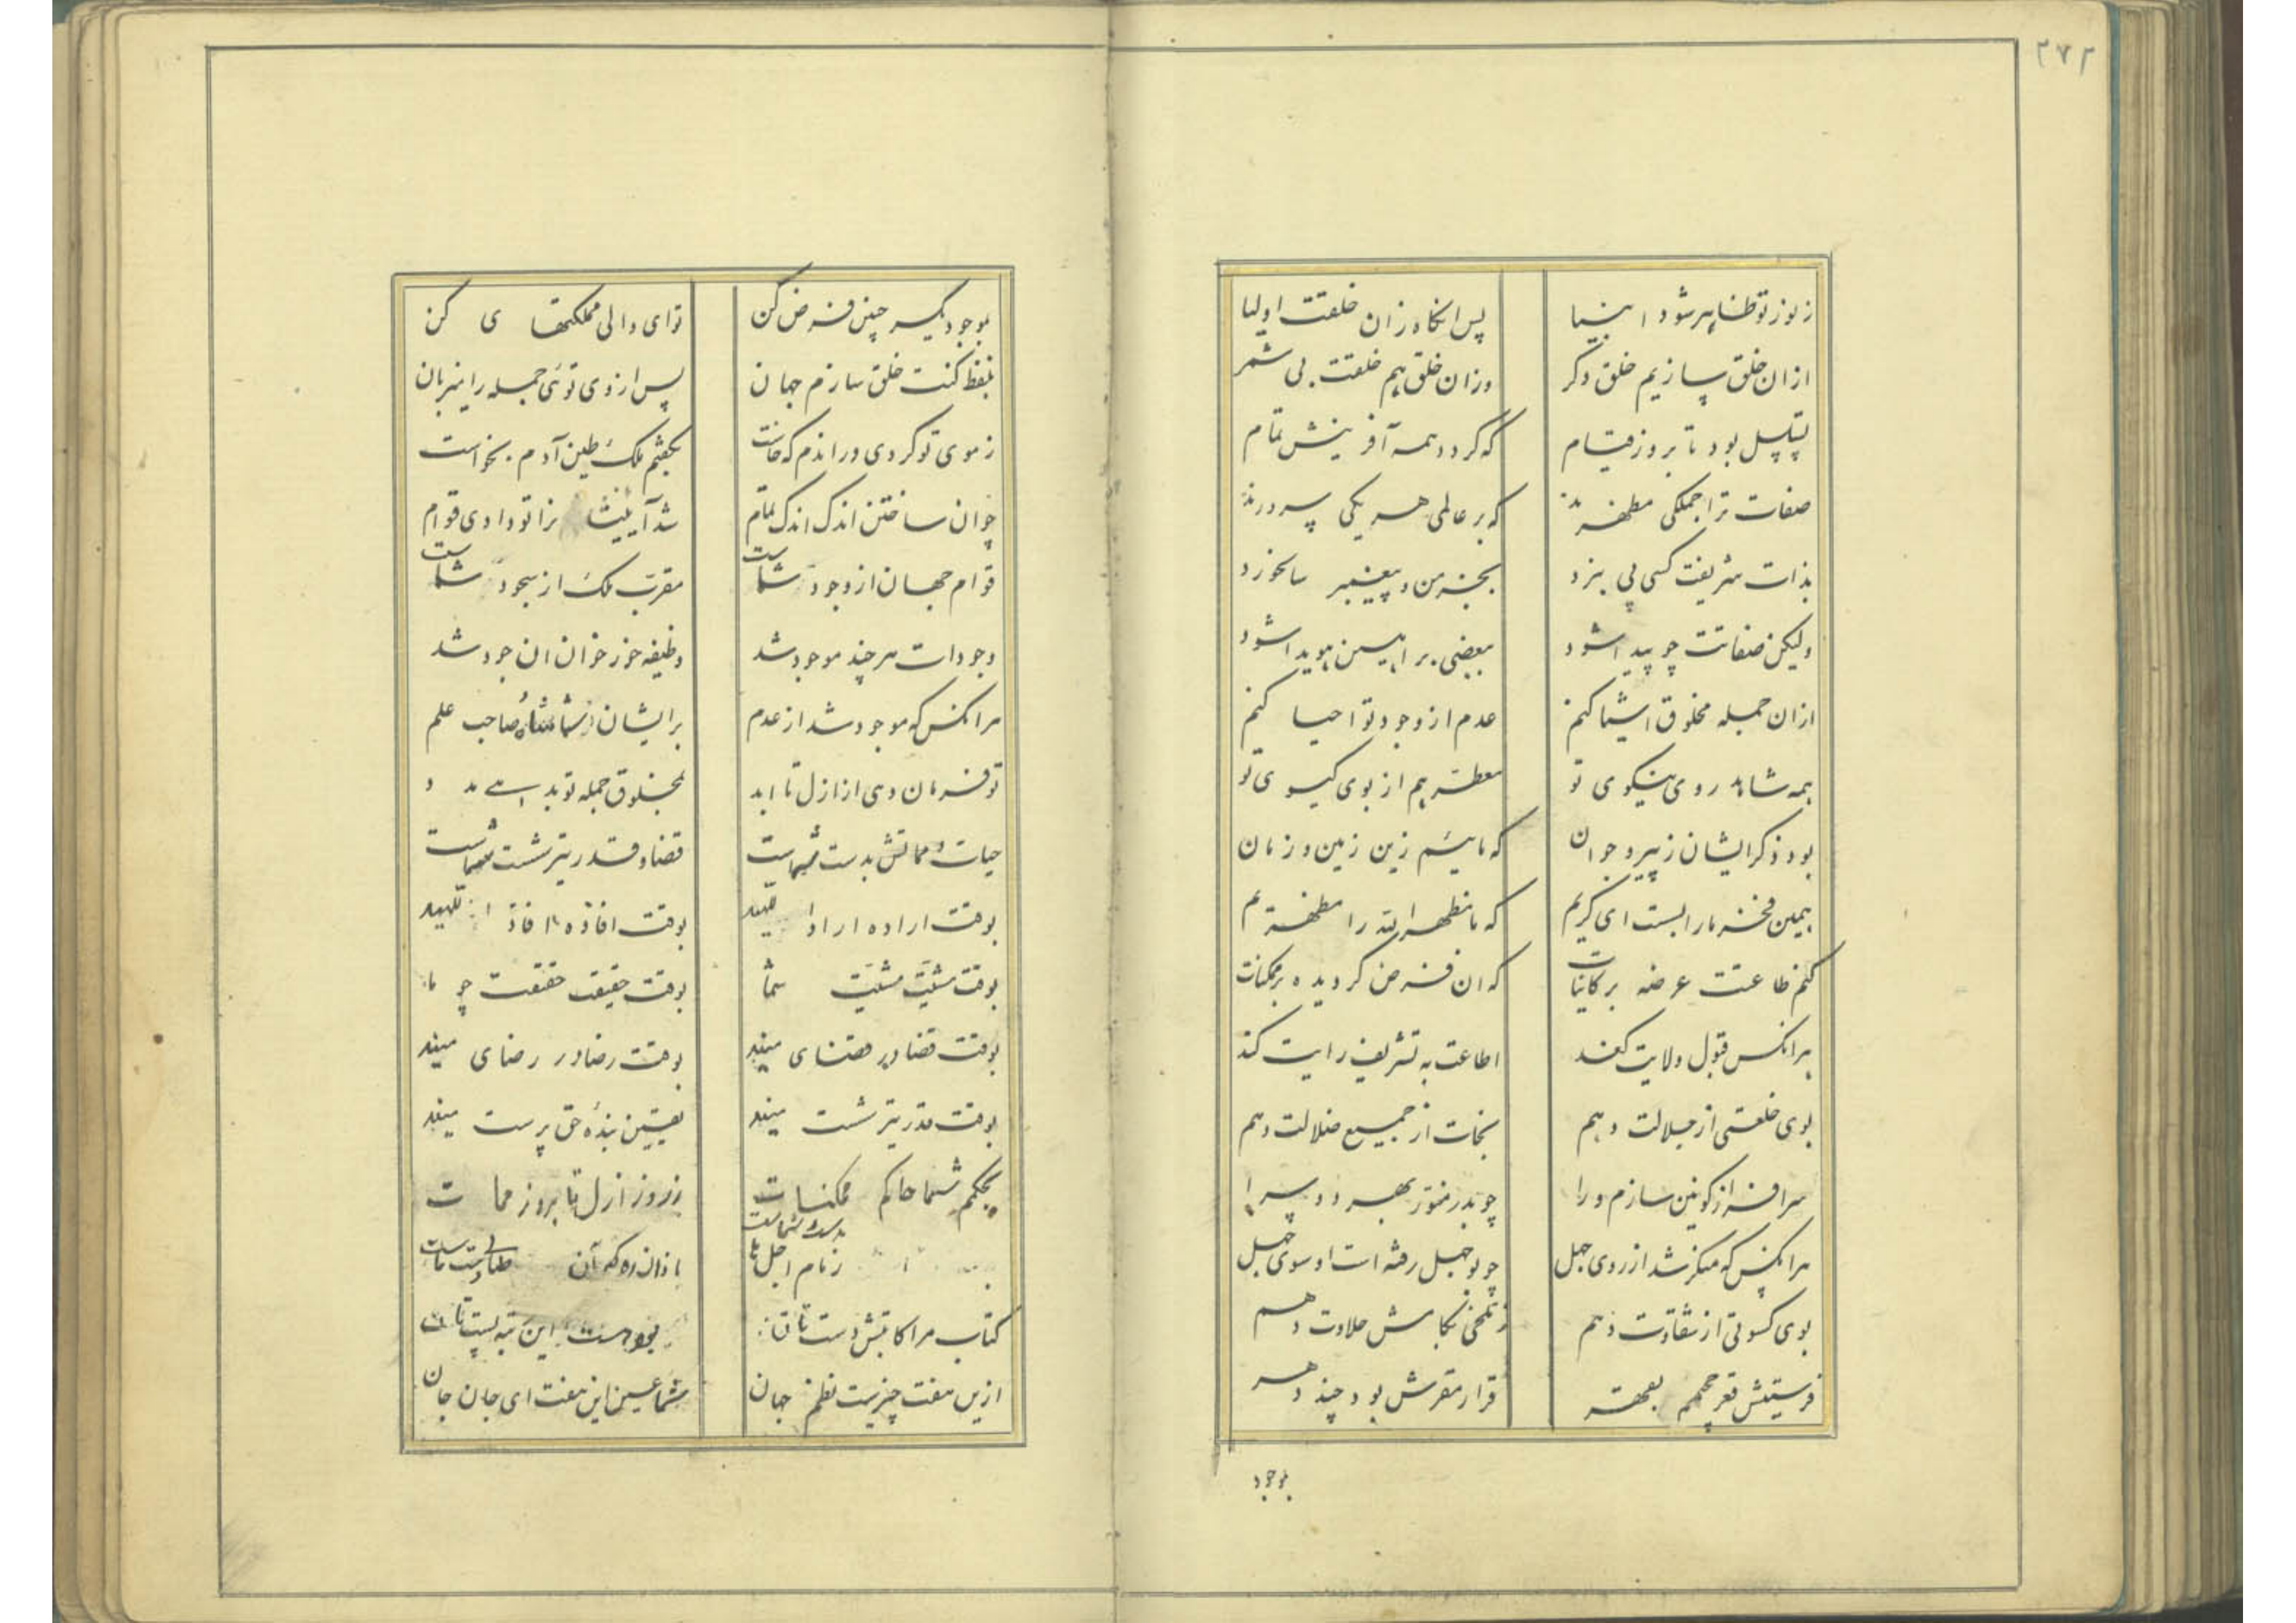 ۲۷۲
ز نور تو ظاهر شود انبیا پس انگاه زان خلقت اولیا
ازان خلق سازیم خلق دگر وزان خلق هم خلقت بی شمر
تسلسل بود تا بروز قیام که گردد همه آفرینش تمام
صفات ترا جملگی مظهرند که بر عالمی هر یکی سرورند
بذات شریفت کسی پی نبرد بجز من و پیغمبر سالخورد
ولیکن صفاتت چو پیدا شود ببعضی براهین هویدا شود
ازان جمله مخلوق اشیا کنم عدم از وجود تو احیا کنم
همه شاهد روی نیکوی تو معطر هم از بوی کیسوی تو
بود ذکر ایشان ز پیر و جوان که مائیم زین زمین و زمان
همین فخر ما را بست ای کریم که ما مظهر الله را مظهریم
کنم طاعتت عرضه بر کاینات که ان فرض کردیده بر ممکنات
هرانکس قبول ولایت کند اطاعت به تشریف رایت کند
بوی خلعتی از جلالت دهم نجات از جمیع ضلالت دهم
سرافراز کونین سازم ورا چو بدر منور بهر دو سرا
هرانکس که منکر شد از روی جهل چو بوجهل رفته است او سوی جهل
بوی کسوتی از شقاوت دهم ز تلخی بکامش حلاوت دهم
فرستیمش قعر جهنم بقهر قرار مقرش بود چند دهر
بوجود
بوجود یکسر چنین فرض کن تو ای والی مملکتهای کن
بلفظ کنت خلق سازم جهان پس از وی توئی جمله را میزبان
ز موی تو کردی دراندم که خاست بچشم ملک طین آدم بخواست
چو ان ساختن اندک اندک تمام شد آنیشا را تو دادی قوام
قوام جهان از وجود شماست مقرب ملک از سجود شماست
وجودات هر چند موجود شد وظیفه خور خوان ان جود شد
هرانکس که موجود شد از عدم بر ایشان شما شاه صاحب علم
تو فرمان دهی از ازل تا ابد بمخلوق جمله تو بد
حیات و مماتش بدست شماست قضا و قدر تیر شست شماست
بوقت اراده ارادا بوقت افاذه
بوقت مشیت مشیت شما بوقت حقیقت حقیقت چو ما
بوقت قضا در قضای منید بوقت رضا در رضای منید
بوقت قدر تیر شست منید یقین بندهٔ حق پرست منید
بحکم شما حاکم ممکنات ز روز ازل تا بروز ممات
زمام اجل باذان ده که آن
کتاب مرا کاتبش دست تان
ازین هفت چیزیست نظم جهان شما عین این هفت ای جان جان